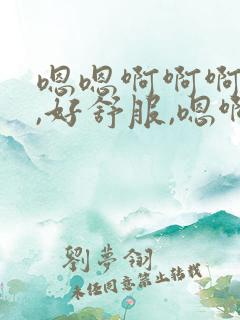 嗯嗯啊啊啊
,好舒服,嗯啊
劉夢翎
未经同意禁止转载